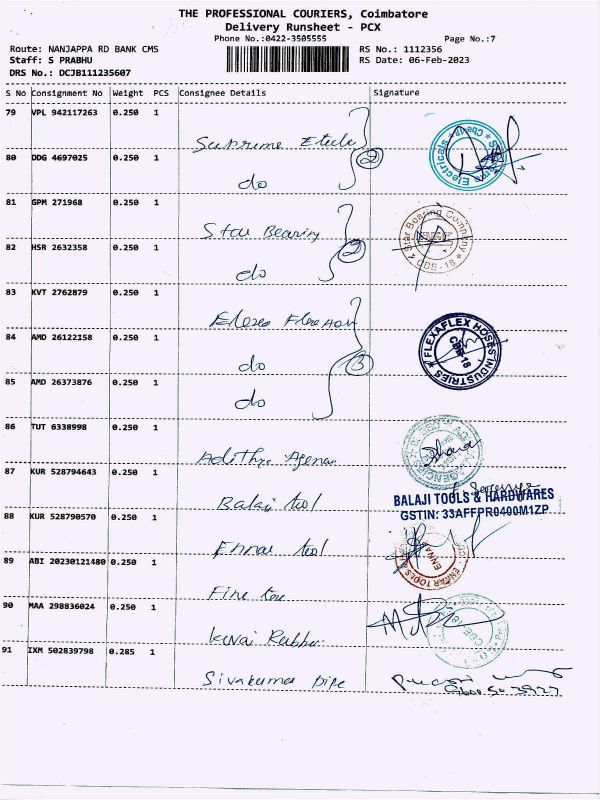 THE PROFESSIONAL COURIERS, Coimbatore
Delivery Runsheet - PCX
Phone No.:0422-3505555
Page No.:7
Route: NANJAPPA RD BANK CMS
RS No.: 1112356
Staff: S PRABHU
RS Date: 06-Feb-2023
DRS No.: DCJB111235607
S No Consignment No Weight PCS Consignee Details Signature
79 VPL 942117263 0.250 1 Supreme
80 DDG 4697025 0.250 1 do 2
81 GPM 271968 0.250 1 Star Bearing
82 HSR 2632358 0.250 1 do 2
Star Bearing Company
CBE-18
83 KVT 2762879 0.250 1
84 AMD 26122158 0.250 1 do 3
85 AMD 26373876 0.250 1 do
FLEXAFLEX HOSES INDUSTRIES
CBE-18
86 TUT 6338998 0.250 1 Adithya
87 KUR 528794643 0.250 1 Balaji tool
BALAJI TOOLS & HARDWARES
GSTIN: 33AFFPR0400M1ZP
88 KUR 528790570 0.250 1 Ennar tool
ENNAR TOOLS
89 ABI 20230121480 0.250 1 Fine
90 MAA 298836024 0.250 1 Kovai Rubber
91 IXM 502839798 0.285 1 Sivakumar pipe